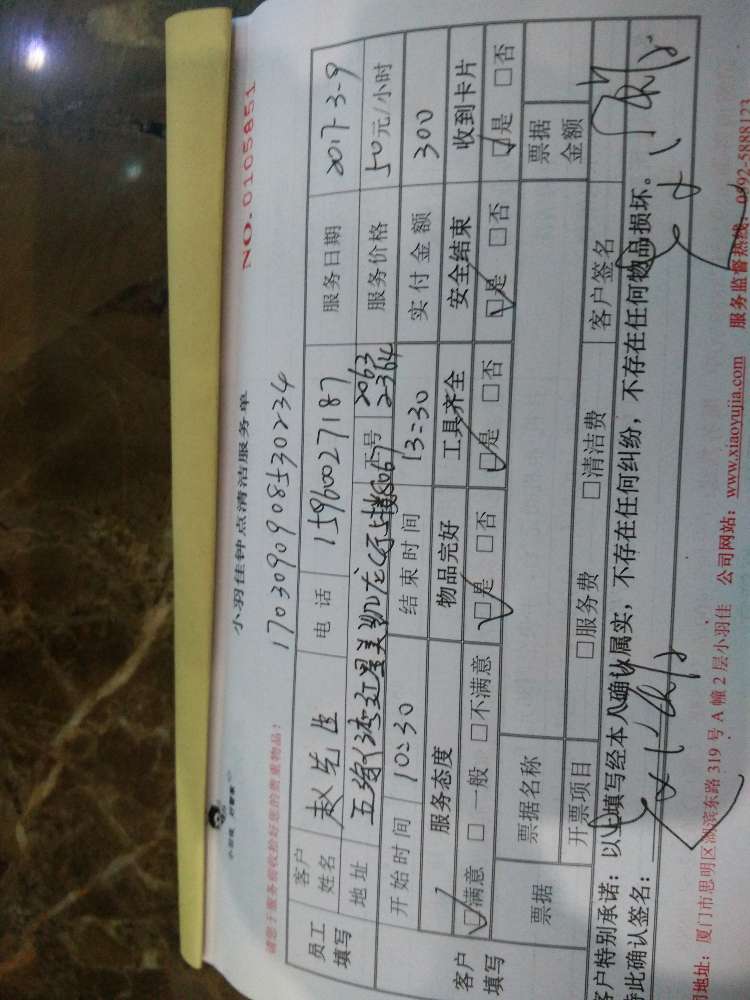 小羽佳 好管家
小羽佳钟点清洁服务单
NO.0105851
17030909085 30234
请您于服务前收拾好您的贵重物品!
员工填写 客户姓名 赵先生 电话 15960027187 服务日期 2017-3-9
地址 五缘湾红星美凯龙 工号 2063 2364 服务价格 50元/小时
开始时间 10:30 结束时间 13:30 实付金额 300
客户填写 服务态度 物品完好 工具齐全 安全结束 收到卡片
□满意 □一般 □不满意 □是 □否 □是 □否 □是 □否 □是 □否
票据 票据名称 票据金额
开票项目 □服务费 □清洁费 客户签名
客户特别承诺:以上填写经本人确认属实,不存在任何纠纷,不存在任何物品损坏。
特此确认签名:
司地址:厦门市思明区湖滨东路319号A幢2层小羽佳 公司网站:www.xiaoyujia.com 服务监督热线:0592-5888122